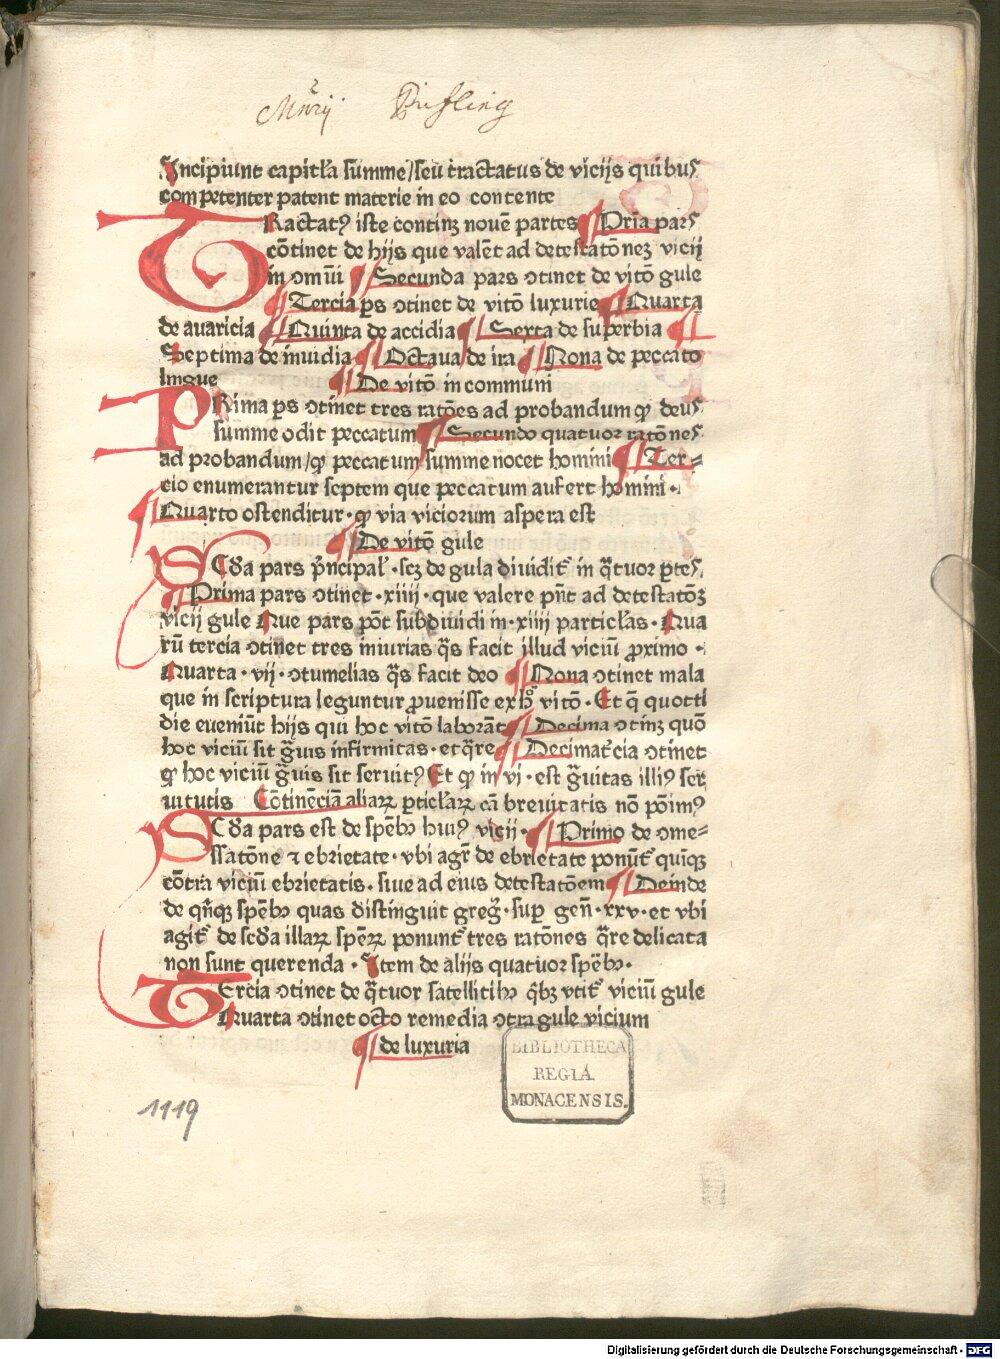 Mnrij Piesling
Incipiunt capitl'a summe/seu tractatus de vicijs quibus
competenter patent materie in eo contente
TRactatꝰ iste continꝫ nouē partes ¶ Pria pars
cōtinet de hijs que valēt ad detestatōneꝫ vicij
in ɔmūi ¶ Secunda pars ɔtinet de vitō gule
¶ Tercia ps ɔtinet de vitō luxurie ¶ Quarta
de auaricia ¶ Quinta de accidia ¶ Sexta de superbia ¶
Septima de inuidia ¶ Octaua de ira ¶ Nona de peccato
lingue ¶ De vitō in communi
PRima ps ɔtinet tres ratōes ad probandum ꝙ deus
summe odit peccatum ¶ Secundo quatuor ratōnes
ad probandum/ꝙ peccatum summe nocet homini ¶ Ter-
cio enumerantur septem que peccatum aufert homini·
¶ Quarto ostenditur·ꝙ via viciorum aspera est
¶ De vitō gule
SCd'a pars p̄ncipal'·scꝫ de gula diuidit' in q̄tuor ptes
¶ Prima pars ɔtinet·xiiij·que valere pn̄t ad detestatōꝫ
vicij gule Que pars pōt subdiuidi in·xiiij particl'as·Qua
rū tercia ɔtinet tres iniurias q̄s facit illud viciū ꝓximo·
Quarta·vij·ɔtumelias q̄s facit deo ¶ Nona ɔtinet mala
que in scriptura leguntur ꝓuenisse ex hͦ vitō·Et q̄ quotti
die eueniūt hijs qui hoc vitō laborāt ¶ Decima ɔtinꝫ quō
hoc viciū sit g̃uis infirmitas·et q̄re ¶ Decimat'cia ɔtinet
ꝙ hoc viciū g̃uis sit seruitꝰ Et ꝙ in vi·est g̃uitas illiꝰ ser
uitutis Cōtinēciā aliaꝝ pticl'aꝝ cā breuitatis nō pōimꝰ
SCd'a pars est de spēbꝫ huiꝰ vicij· ¶ Primo de ɔme-
ssatōne ⁊ ebrietate·vbi agit' de ebrietate ponūt' quīqꝫ
cōtra viciū ebrietatis·siue ad eius detestatōem ¶ Deinde
de qn̄qꝫ spēbꝫ quas distinguit greg̃·sup gen̄·xxv·et vbi
agit' de scd'a illaꝝ spēꝝ ponunt' tres ratōnes q̄re delicata
non sunt querenda·Item de alijs quatuor spēbꝫ·
TErcia ɔtinet de q̄tuor satellitibꝫ q̄bꝫ vtit' viciū gule
Quarta ɔtinet octo remedia ɔtra gule vicium
¶ de luxuria
BIBLIOTHECA
REGIA
MONACENSIS.
1119
Digitalisierung gefördert durch die Deutsche Forschungsgemeinschaft - DFG